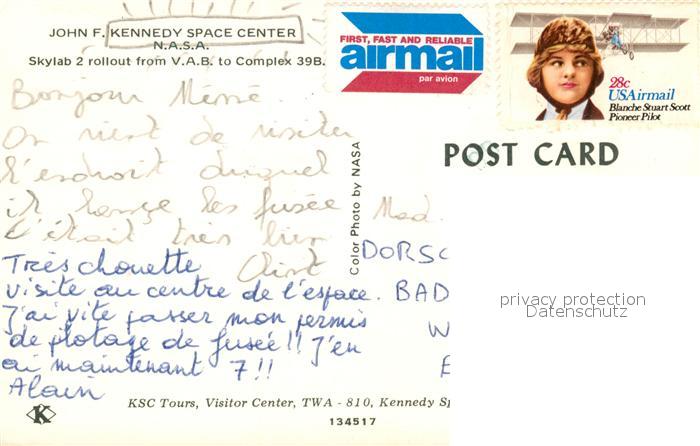 JOHN F. KENNEDY SPACE CENTER
N.A.S.A.
Skylab 2 rollout from V.A.B. to Complex 39B.
FIRST, FAST AND RELIABLE
airmail
par avion
28c
USAirmail
Blanche Stuart Scott
Pioneer Pilot
POST CARD
Color Photo by NASA
Bonjour Mémé
On vient de visiter
l'endroit duquel
il lance les fusée
C'était très bien
Très chouette
visite au centre de l'espace.
J'ai vite passer mon permis
de pilotage de fusée!! J'en
ai maintenant 7!!
Alain
Mad.
DORSC
BAD
W
E
privacy protection
Datenschutz
K
KSC Tours, Visitor Center, TWA - 810, Kennedy Sp
134517